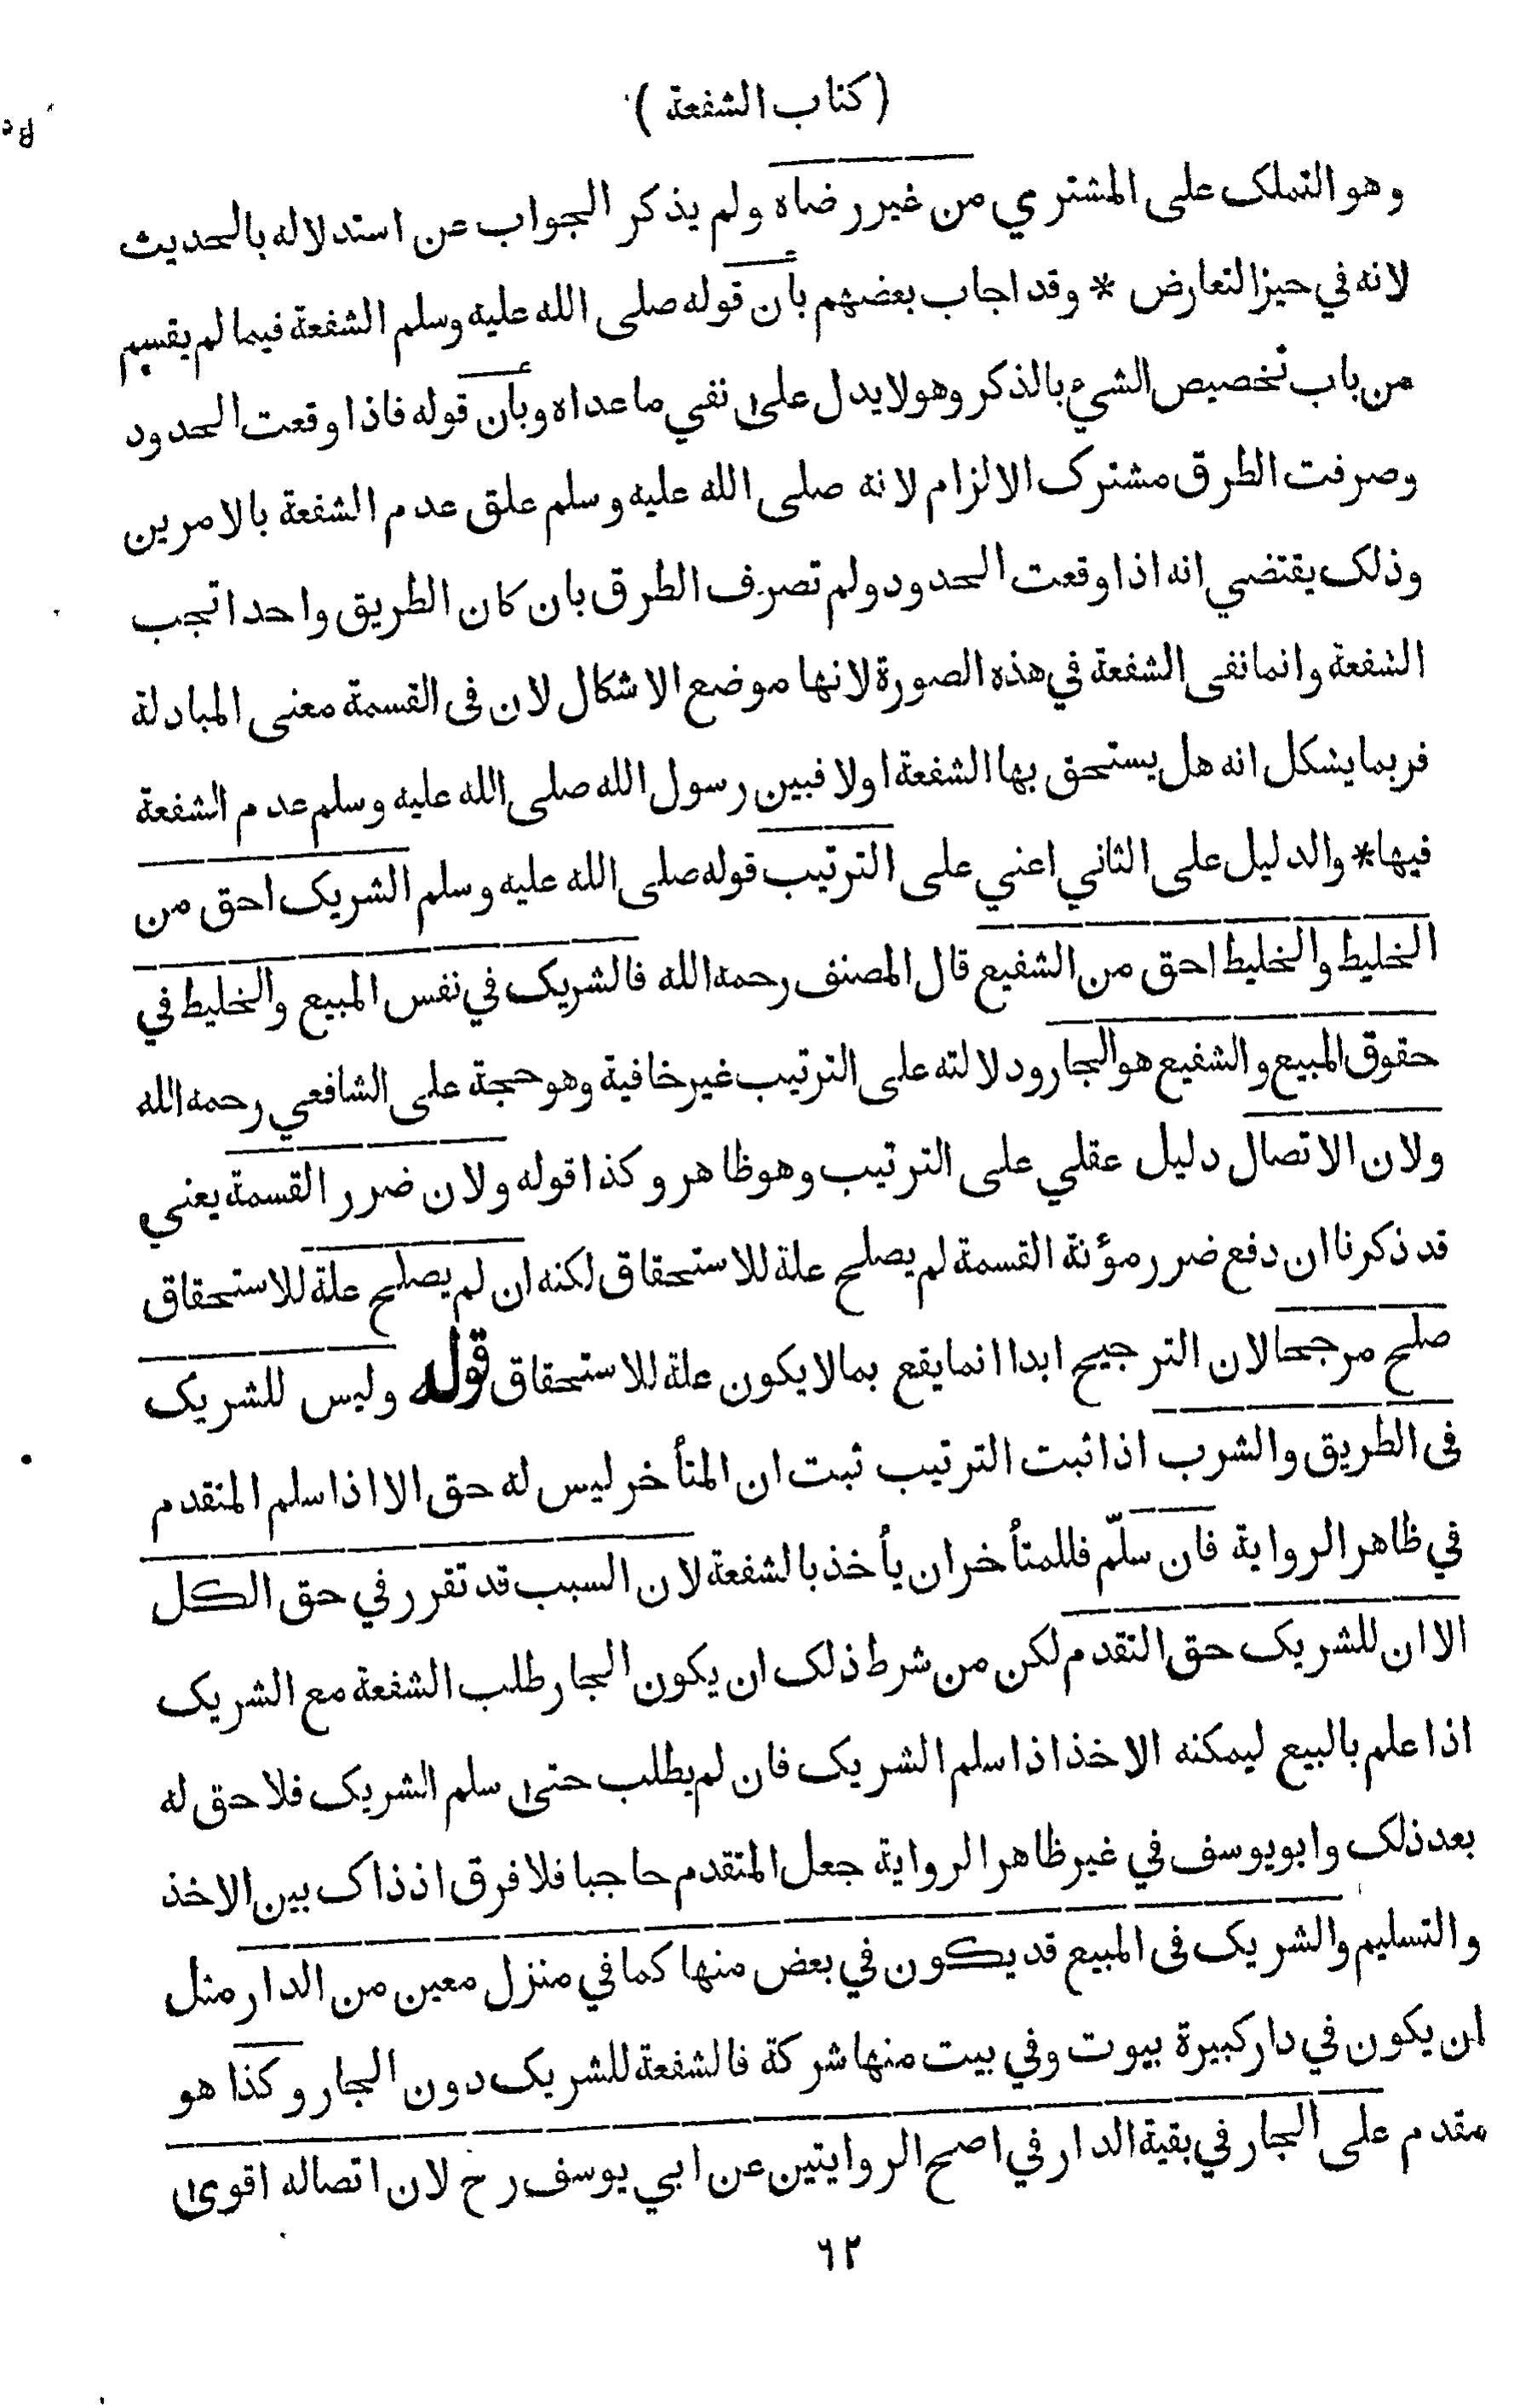 ( كتاب الشفعة )
وهو التملك على المشتري من غير رضاه ولم يذكر الجواب عن استدلاله بالحديث
لانه في حيز التعارض * وقد اجاب بعضهم بأن قوله صلى الله عليه وسلم الشفعة فيما لم يقسم
من باب تخصيص الشيء بالذكر وهو لا يدل على نفي ما عداه وبأن قوله فاذا وقعت الحدود
وصرفت الطرق مشترك الالزام لانه صلى الله عليه وسلم علق عدم الشفعة بالامرين
وذلك يقتضي انه اذا وقعت الحدود ولم تصرف الطرق بان كان الطريق واحدا تجب
الشفعة وانما نفى الشفعة في هذه الصورة لانها موضع الاشكال لان في القسمة معنى المبادلة
فربما يشكل انه هل يستحق بها الشفعة اولا فبين رسول الله صلى الله عليه وسلم عدم الشفعة
فيها * والدليل على الثاني اعني على الترتيب قوله صلى الله عليه وسلم الشريك احق من
الخليط والخليط احق من الشفيع قال المصنف رحمه الله فالشريك في نفس المبيع والخليط في
حقوق المبيع والشفيع هو الجار ودلالته على الترتيب غير خافية وهو حجة على الشافعي رحمه الله
ولان الاتصال دليل عقلي على الترتيب وهو ظاهر وكذا قوله ولان ضرر القسمة يعني
قد ذكرنا ان دفع ضرر مؤنة القسمة لم يصلح علة للاستحقاق لكنه ان لم يصلح علة للاستحقاق
صلح مرجحا لان الترجيح ابدا انما يقع بما لا يكون علة للاستحقاق قوله وليس للشريك
في الطريق والشرب اذا ثبت الترتيب ثبت ان المتأخر ليس له حق الا اذا سلم المتقدم
في ظاهر الرواية فان سلّم فللمتأخر ان يأخذ بالشفعة لان السبب قد تقرر في حق الكل
الا ان للشريك حق التقدم لكن من شرط ذلك ان يكون الجار طلب الشفعة مع الشريك
اذا علم بالبيع ليمكنه الاخذ اذا سلم الشريك فان لم يطلب حتى سلم الشريك فلا حق له
بعد ذلك وابو يوسف في غير ظاهر الرواية جعل المتقدم حاجبا فلا فرق اذ ذاك بين الاخذ
والتسليم والشريك في المبيع قد يكون في بعض منها كما في منزل معين من الدار مثل
ان يكون في دار كبيرة بيوت وفي بيت منها شركة فالشفعة للشريك دون الجار وكذا هو
مقدم على الجار في بقية الدار في اصح الروايتين عن ابي يوسف رح لان اتصاله اقوى
٦٢